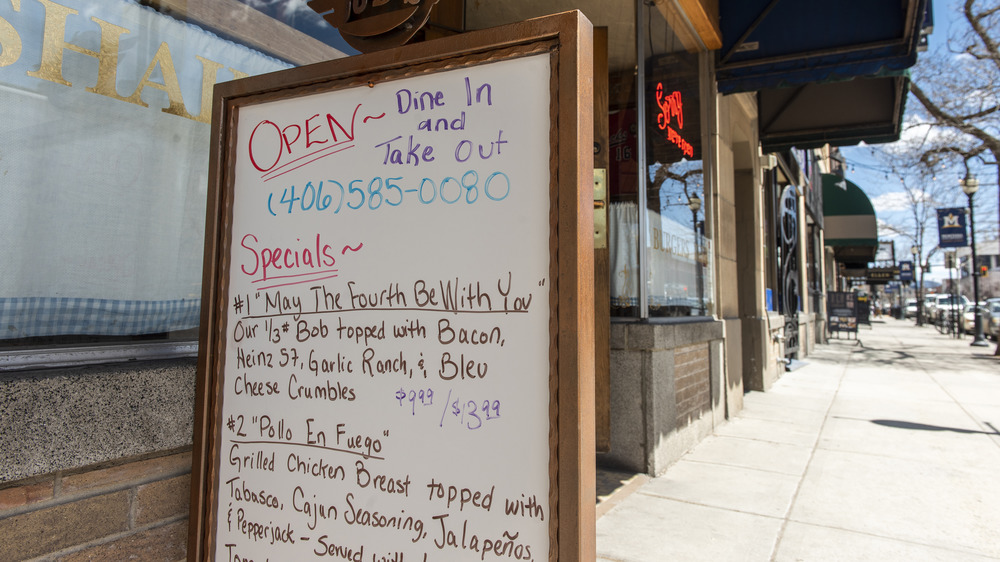 SHA
OPEN~ Dine In
and
Take Out
(406)585-0080
Specials~
#1 "May The Fourth Be With You"
Our 1/3# Bob topped with Bacon,
Heinz 57, Garlic Ranch, & Bleu
Cheese Crumbles $9.99 /$13.99
#2 "Pollo En Fuego"
Grilled Chicken Breast topped with
Tabasco, Cajun Seasoning, Jalapeños,
& Pepperjack - Served with
Sorry
we're open
BURGERS